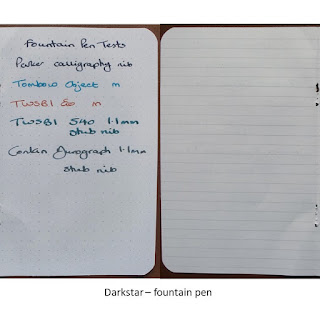 Fountain Pen Tests
Parker calligraphy nib
Tombow Object m
TWSBI 580 m
TWSBI 540 1.1mm
stub nib
Conklin Duragraph 1.1mm
stub nib
Darkstar – fountain pen